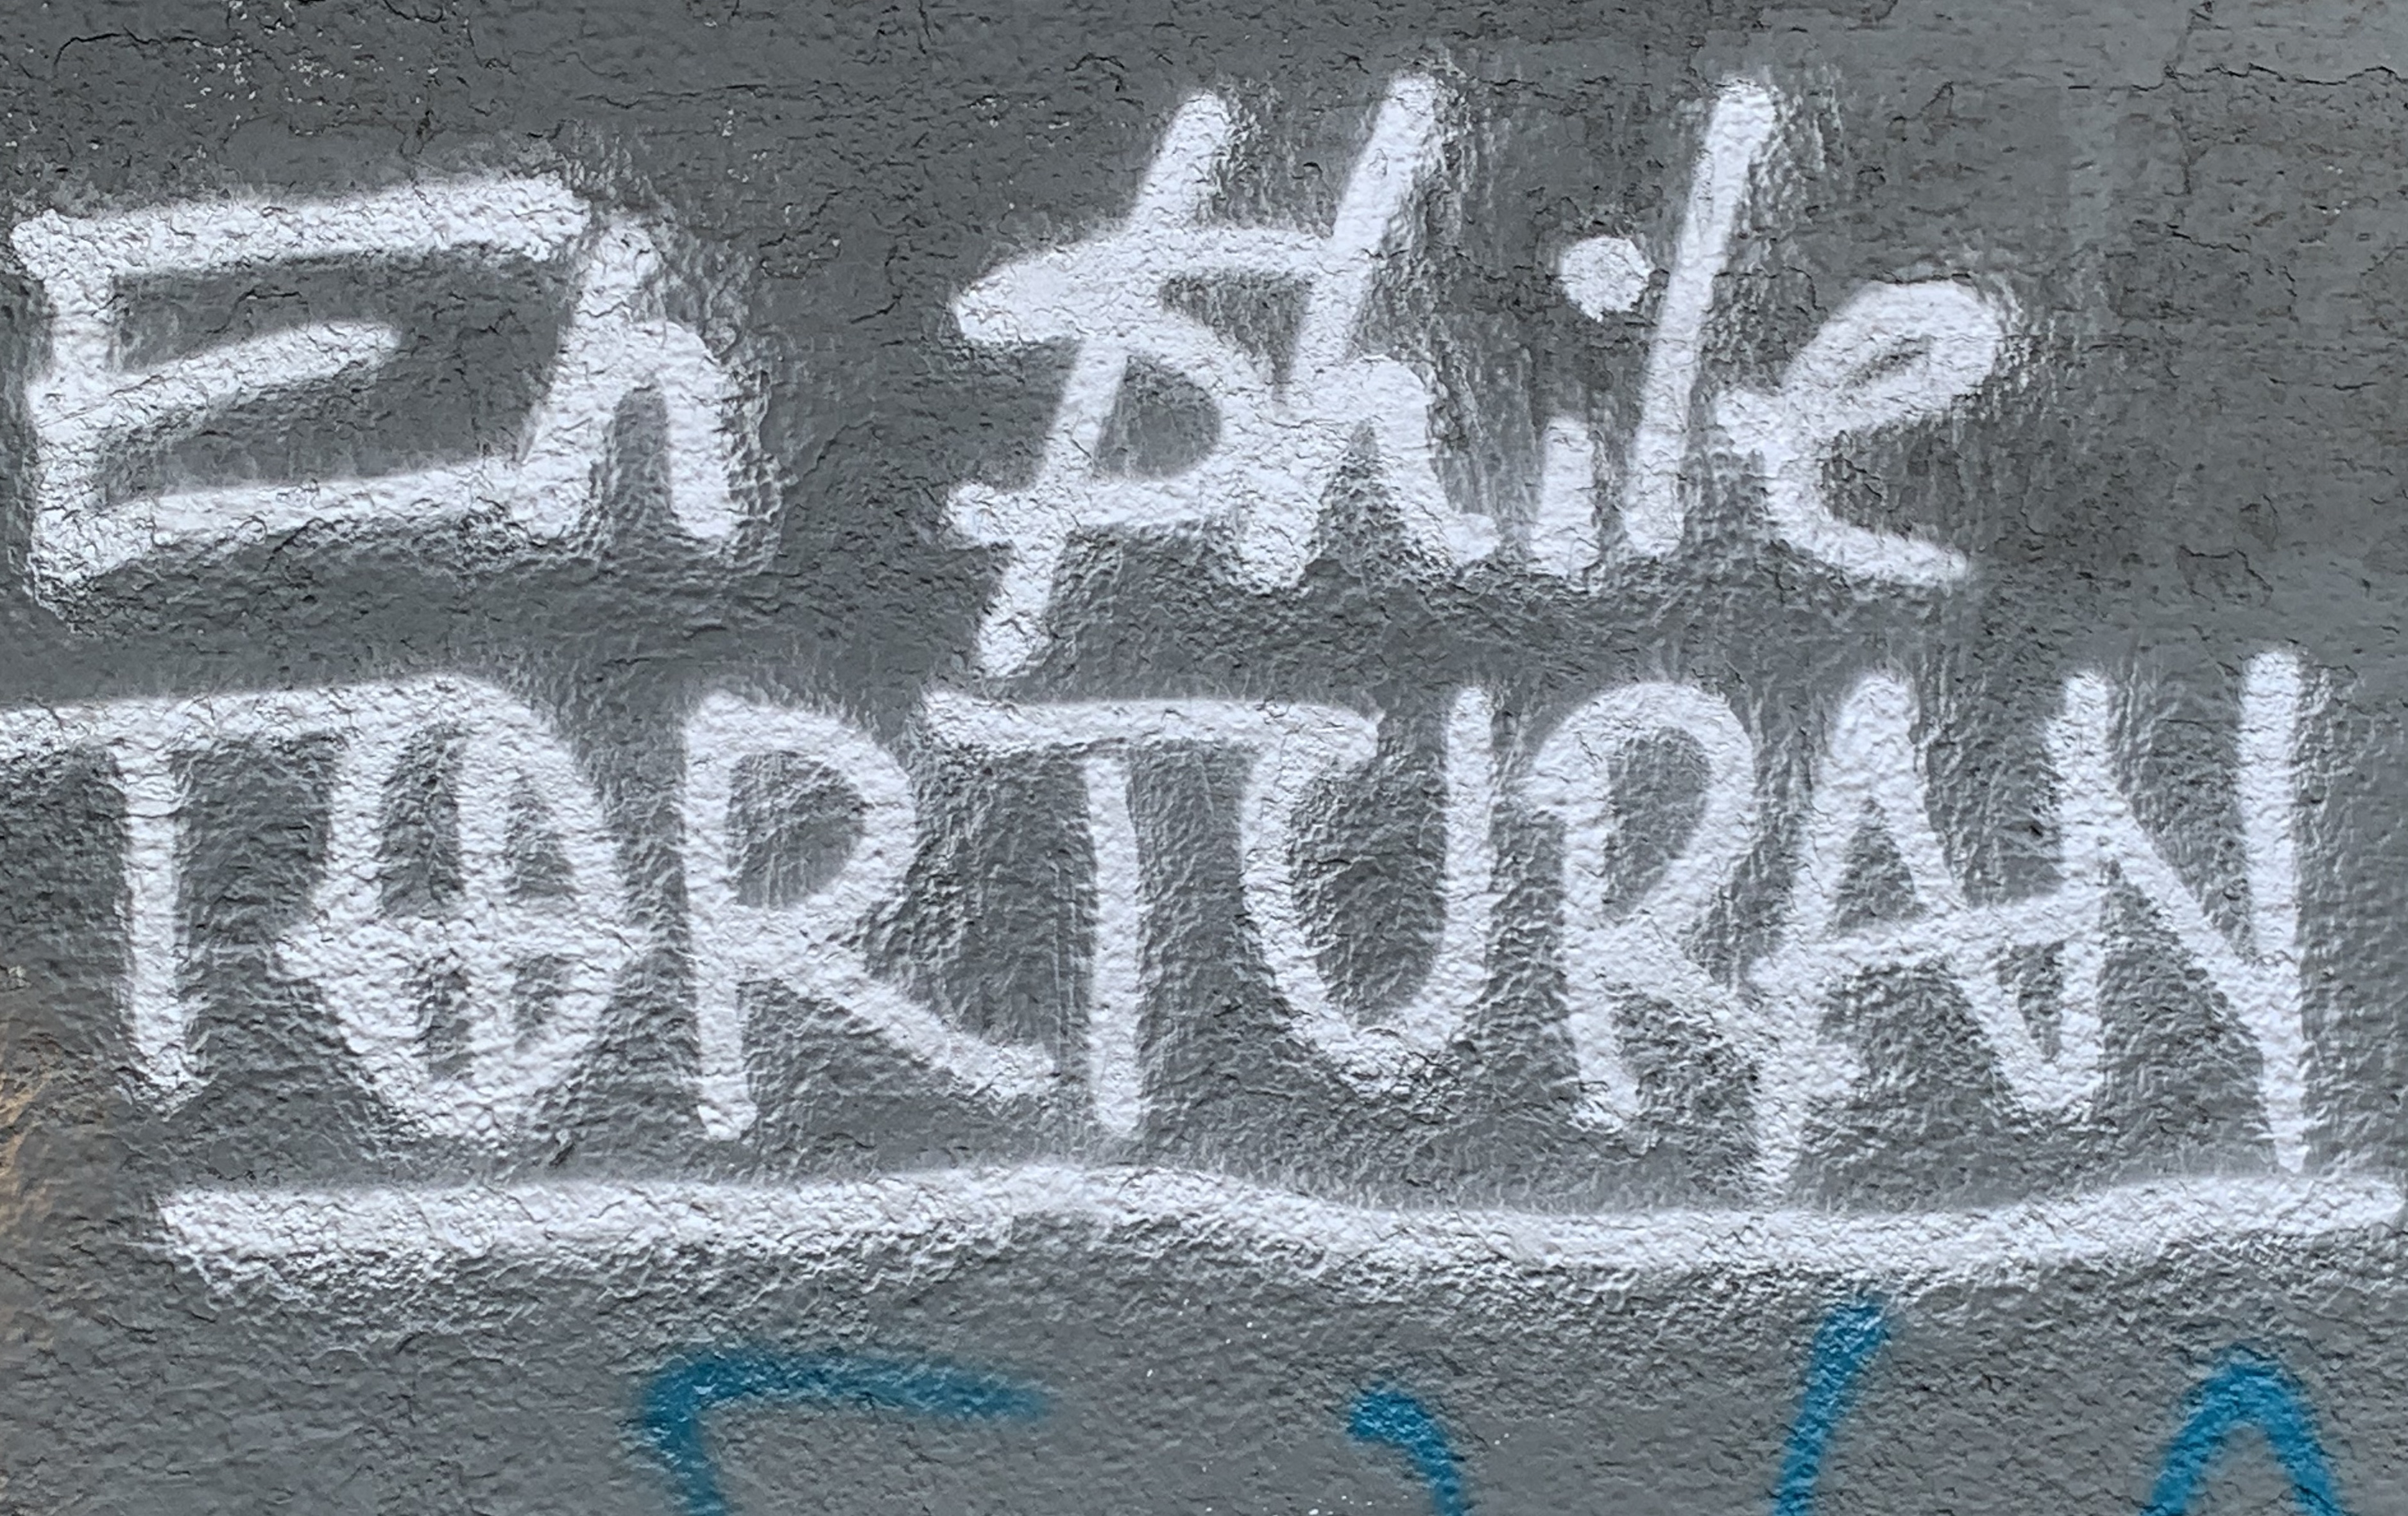 En $hile
TORTURAN